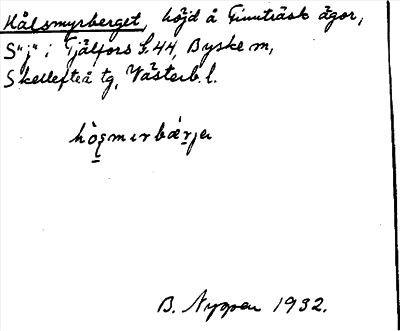 Hålsmyrberget, höjd å Finnträsk ägor,
S "j" i Fjälfors S. 44, Byske m,
Skellefteå tg, Västerb. l.
hò̱ʂmırbǽrjer
B. Nygren 1932.